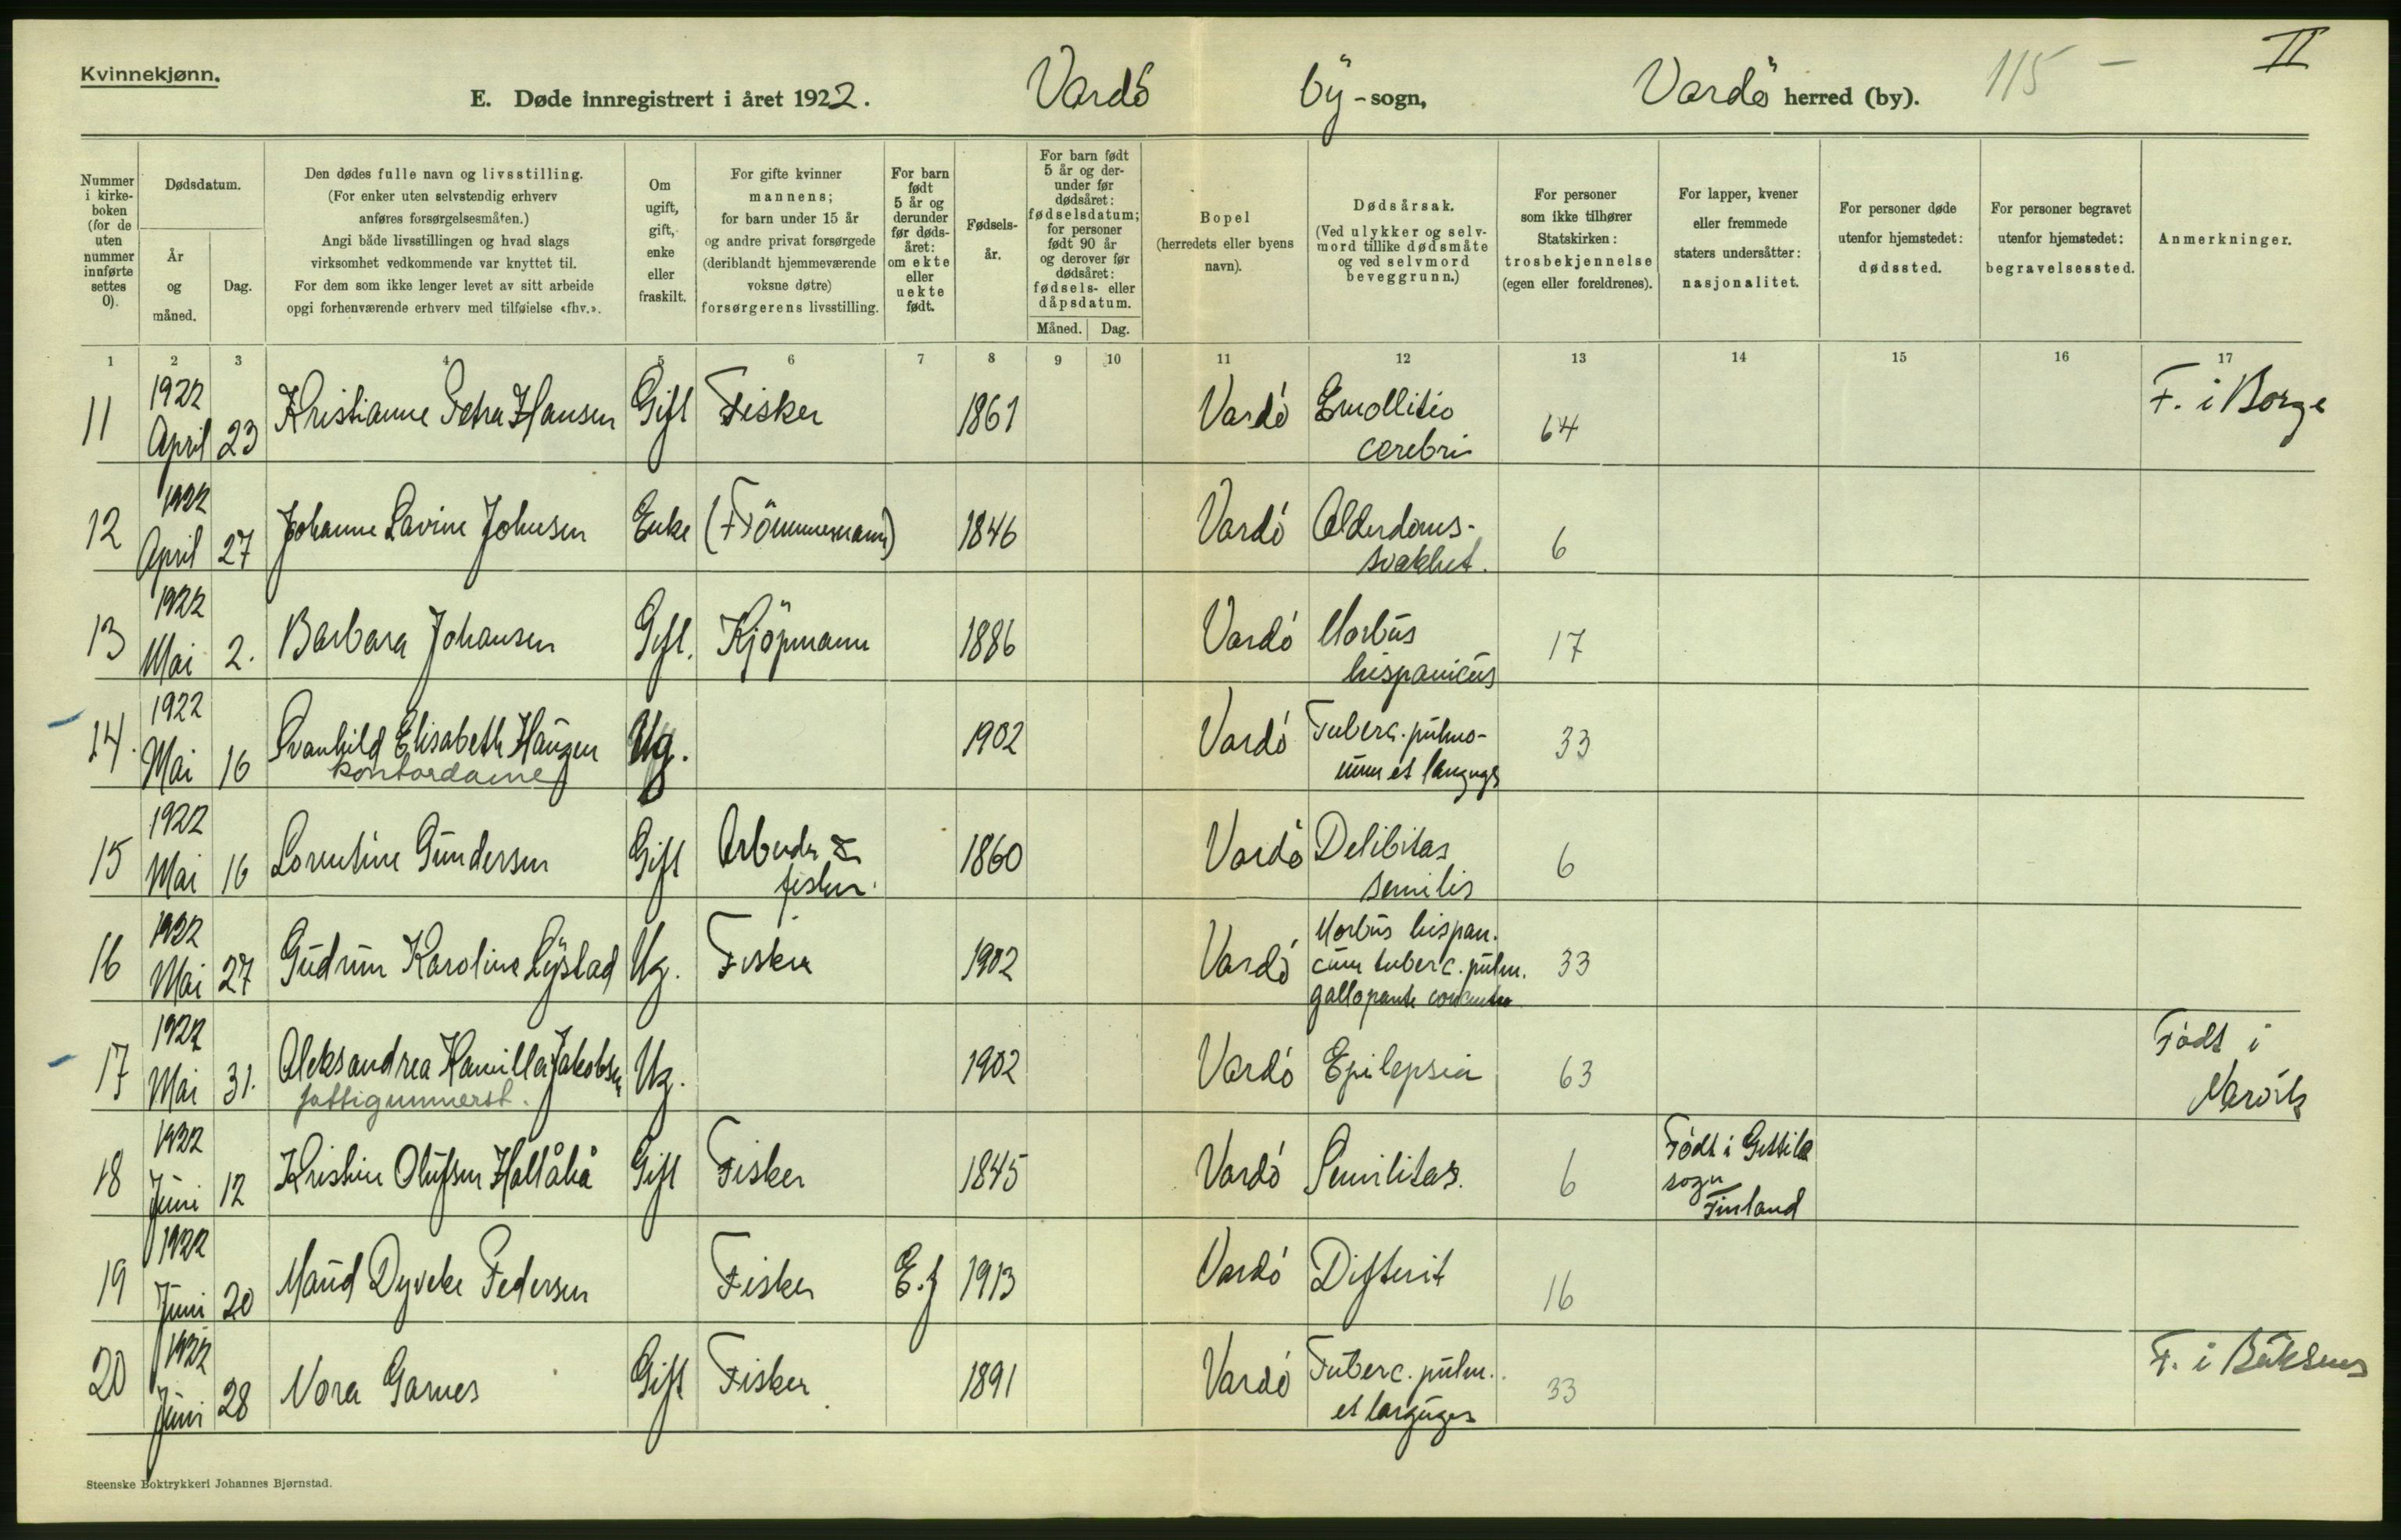 Kvinnekjønn.
E. Døde innregistrert i året 1922. Vardö by-sogn, Vardö herred (by). 115 – II
Nummer i kirkeboken (for de uten nummer innførte settes 0).
Dødsdatum.
År og måned.
Dag.
Den dødes fulle navn og livsstilling.
(For enker uten selvstendig erhverv
anføres forsørgelsesmåten.)
Angi både livsstillingen og hvad slags
virksomhet vedkommende var knyttet til.
For dem som ikke lenger levet av sitt arbeide
opgi forhenværende erhverv med tilføielse «fhv.».
Om
ugift,
gift,
enke
eller
fraskilt.
For gifte kvinner
mannens;
for barn under 15 år
og andre privat forsørgede
(deriblandt hjemmeværende
voksne døtre)
forsørgerens livsstilling.
For barn
født
5 år og
derunder
før døds-
året:
om ekte
eller
uekte
født.
Fødsels-
år.
For barn født
5 år og der-
under før
dødsåret:
fødselsdatum;
for personer
født 90 år
og derover før
dødsåret:
fødsels- eller
dåpsdatum.
Måned. Dag.
Bopel
(herredets eller byens
navn).
Dødsårsak.
(Ved ulykker og selv-
mord tillike dødsmåte
og ved selvmord
beveggrunn.)
For personer
som ikke tilhører
Statskirken:
trosbekjennelse
(egen eller foreldrenes).
For lapper, kvener
eller fremmede
staters undersåtter:
nasjonalitet.
For personer døde
utenfor hjemstedet:
dødssted.
For personer begravet
utenfor hjemstedet:
begravelsessted.
Anmerkninger.
1 2 3 4 5 6 7 8 9 10 11 12 13 14 15 16 17
11 1922 April 23 Kristianne Petra Hansen Gift Fisker 1861 Vardö Emollitio cerebri 64 F. i Borge
12 1922 April 27 Johanne Lavine Johnsen Enke (Tömmermann) 1846 Vardö Alderdoms- svakhet. 6
13 1922 Mai 2. Barbara Johansen Gift. Kjöpmann 1886 Vardö Morbus hispanicus 17
14. 1922 Mai 16 Svanhild Elisabeth Haugen kontordame Ug. 1902 Vardö Tuberc. pulmo- num et laryngis 33
15 1922 Mai 16 Lorentine Gundersen Gift Arbeider & fisker. 1860 Vardö Delibitas senilis 6
16 1922 Mai 27 Gudrun Karoline Lystad Ug. Fisker 1902 Vardö Morbus hispan. cum tuberc. pulm. gallopante 33
17 1922 Mai 31. Aleksandrea Kamilla Jakobsen fattigunnerst. Ug. 1902 Vardö Epilepsia 63 Født i Narvik
18 1922 Juni 12 Kristine Olufsen Hallåkå Gift Fisker 1845 Vardö Senilitas. 6 Född i sogn Finland
19 1922 Juni 20 Maud Dyveke Pedersen Fisker E.f 1913 Vardö Difterit 16
20 1922 Juni 28 Nora Garnes Gift Fisker 1891 Vardö Tuberc. pulm. et laryngis 33 F. i Buksnes
Steenske Boktrykkeri Johannes Bjørnstad.